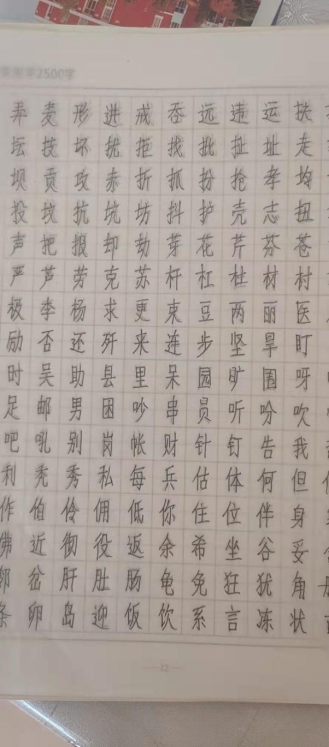 常用字2500字
弄 麦 形 进 戒 吞 远 违 运 扶
坛 技 坏 扰 拒 找 批 扯 址 走
坝 贡 攻 赤 折 抓 扮 抢 孝 均
投 坟 抗 坑 坊 抖 护 壳 志 扭
声 把 报 却 劫 芽 花 芹 芬 苍
严 芦 劳 克 苏 杆 杠 杜 材 村
极 李 杨 求 更 束 豆 两 丽 医
励 否 还 歼 来 连 步 坚 旱 盯
时 吴 助 县 里 呆 园 旷 围 呀
足 邮 男 困 吵 串 员 听 吩 吹
吧 吼 别 岗 帐 财 针 钉 告 我
利 秃 秀 私 每 兵 估 体 何 但
作 伯 伶 佣 低 你 住 位 伴 身
佛 近 彻 役 返 余 希 坐 谷 妥
邻 岔 肝 肚 肠 龟 免 狂 犹 角
条 卵 岛 迎 饭 饮 系 言 冻 状